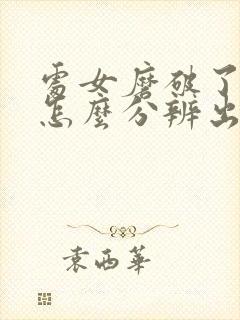 處女磨破了
怎麼分辨出
袁西華